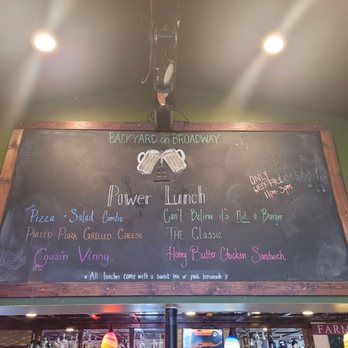 BACKYARD on BROADWAY
Power Lunch
ONLY
WED-FRI
11AM-3PM
Pizza + Salad Combo
Can't Believe it's Not a Burger
Pulled Pork Grilled Cheese
THE Classic
Cousin Vinny
Honey Butter Chicken Sandwich
* All lunches come with a sweet tea or pink lemonade